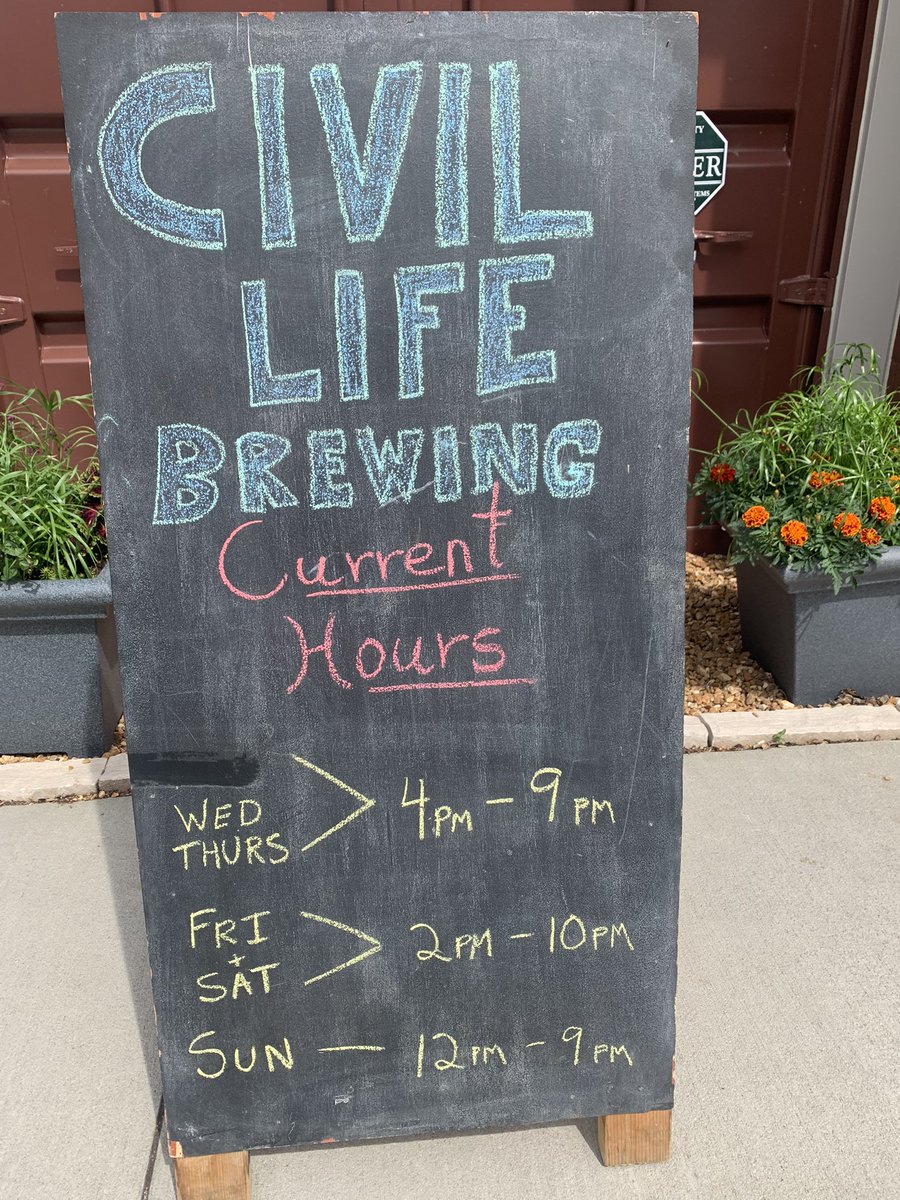 CIVIL
LIFE
BREWING
Current
Hours
WED
THURS
4PM - 9PM
FRI
+
SAT
2PM - 10PM
SUN — 12PM - 9PM